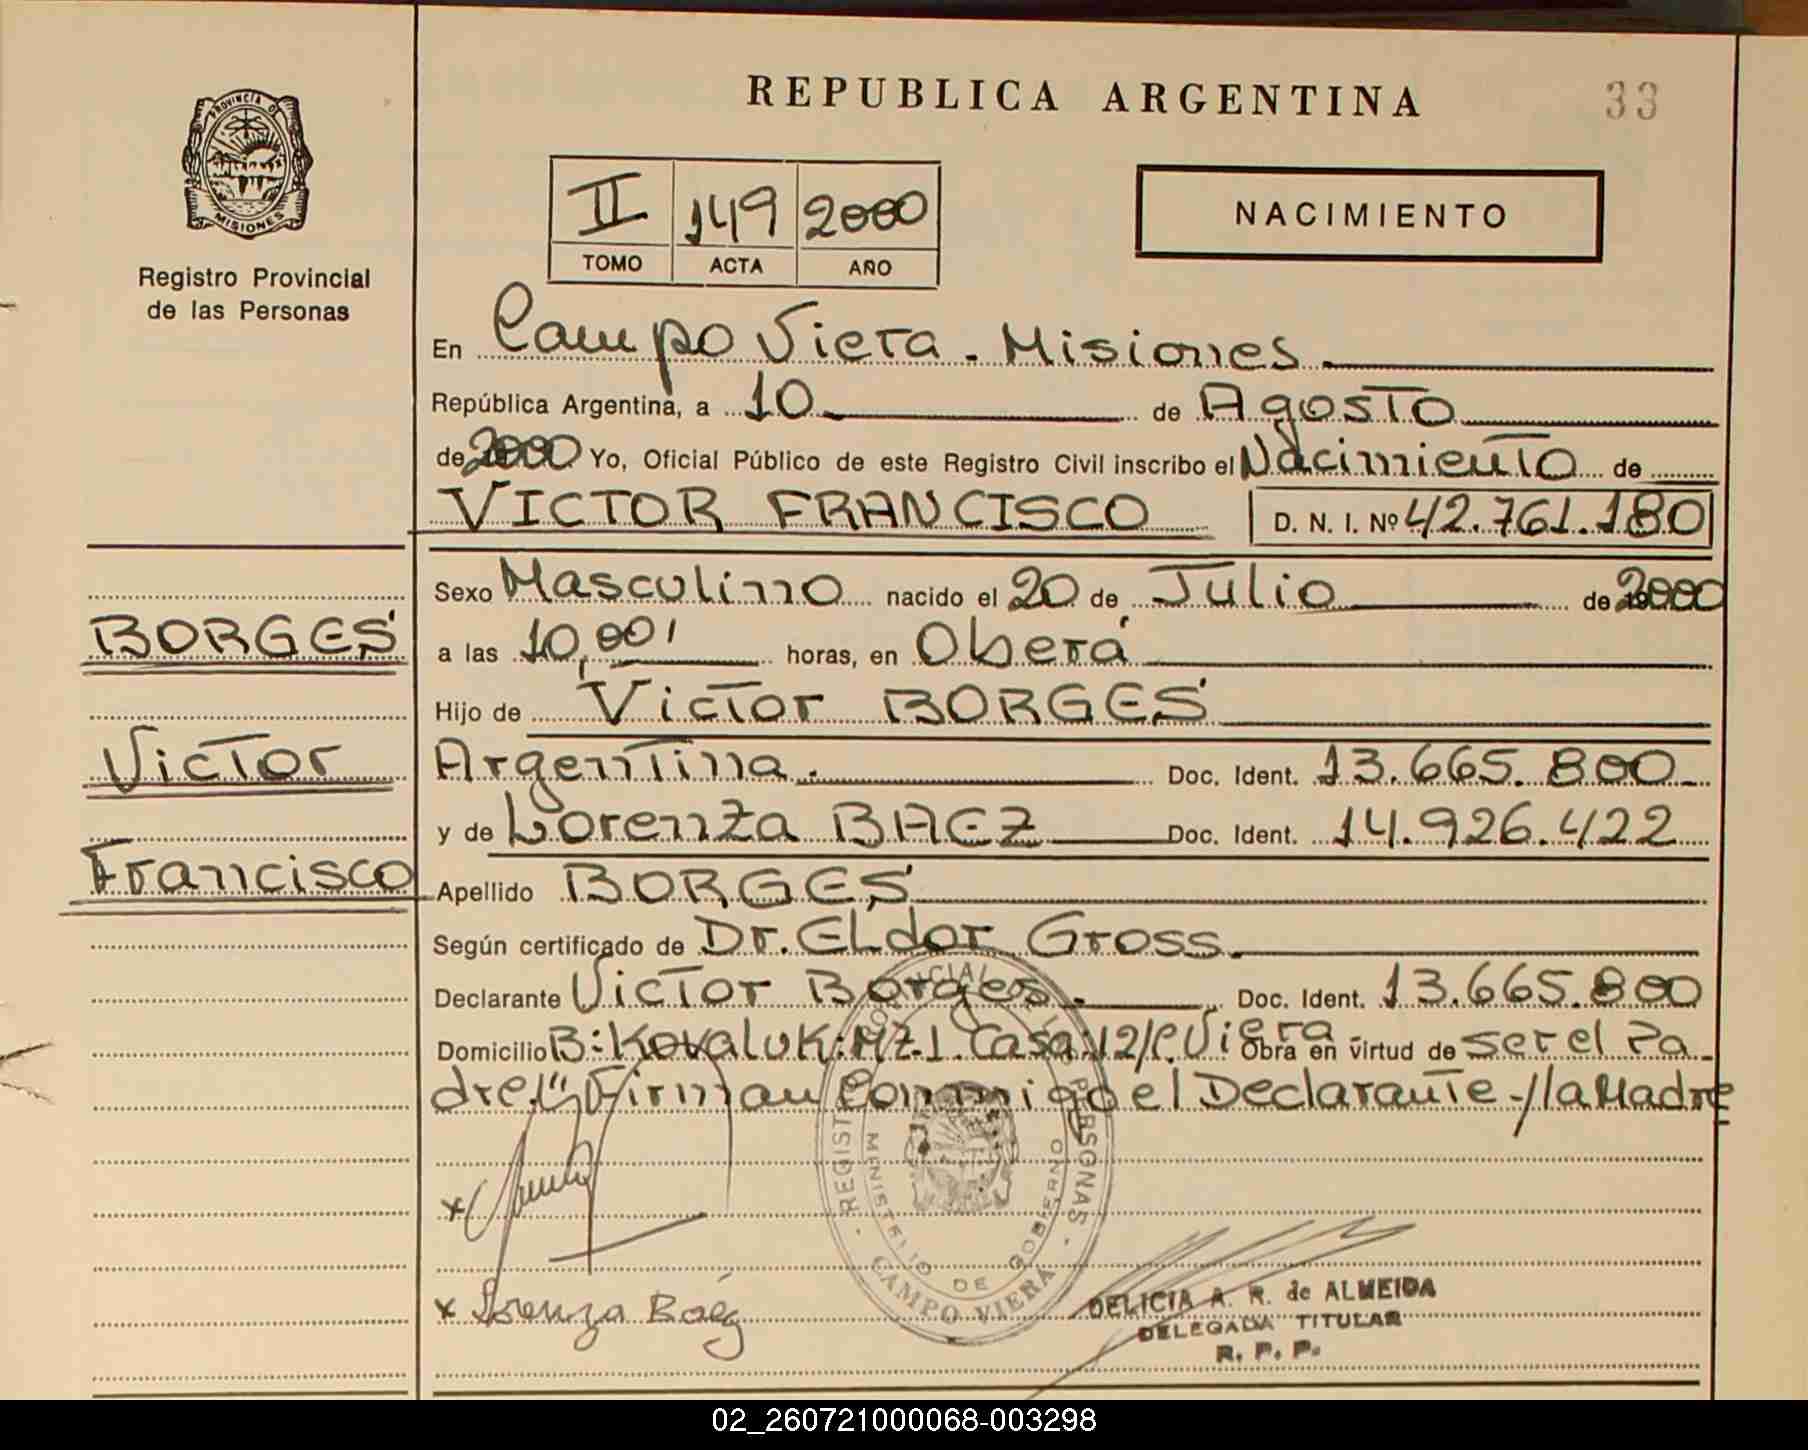 REPUBLICA ARGENTINA
33
PROVINCIA DE
MISIONES
Registro Provincial
de las Personas
II 149 2000
TOMO ACTA AÑO
NACIMIENTO
En Campo Viera - Misiones
República Argentina, a 10 de Agosto
de 2000 Yo, Oficial Público de este Registro Civil inscribo el Nacimiento de
VICTOR FRANCISCO D. N. I. Nº 42.761.180
Sexo Masculino nacido el 20 de Julio de 2000
BORGES
a las 10,00' horas, en Oberá
Hijo de Victor BORGES
Victor
Argentina. Doc. Ident. 13.665.800
y de Lorenza BAEZ Doc. Ident. 14.926.422
Francisco
Apellido BORGES
Según certificado de Dr. ELdor Gross
Declarante Victor Borges. Doc. Ident. 13.665.800
Domicilio B: Kovaluk: MZ.1. Casa: 12/C. Viera - Obra en virtud de ser el Pa
dre. Firman Conmigo el Declarante -/la Madre
x
x Lorenza Baez
REGISTRO PROVINCIAL DE LAS PERSONAS
MINISTERIO DE GOBIERNO
CAMPO VIERA
DELICIA A. R. de ALMEIDA
DELEGADA TITULAR
R. P. P.
02_260721000068-003298